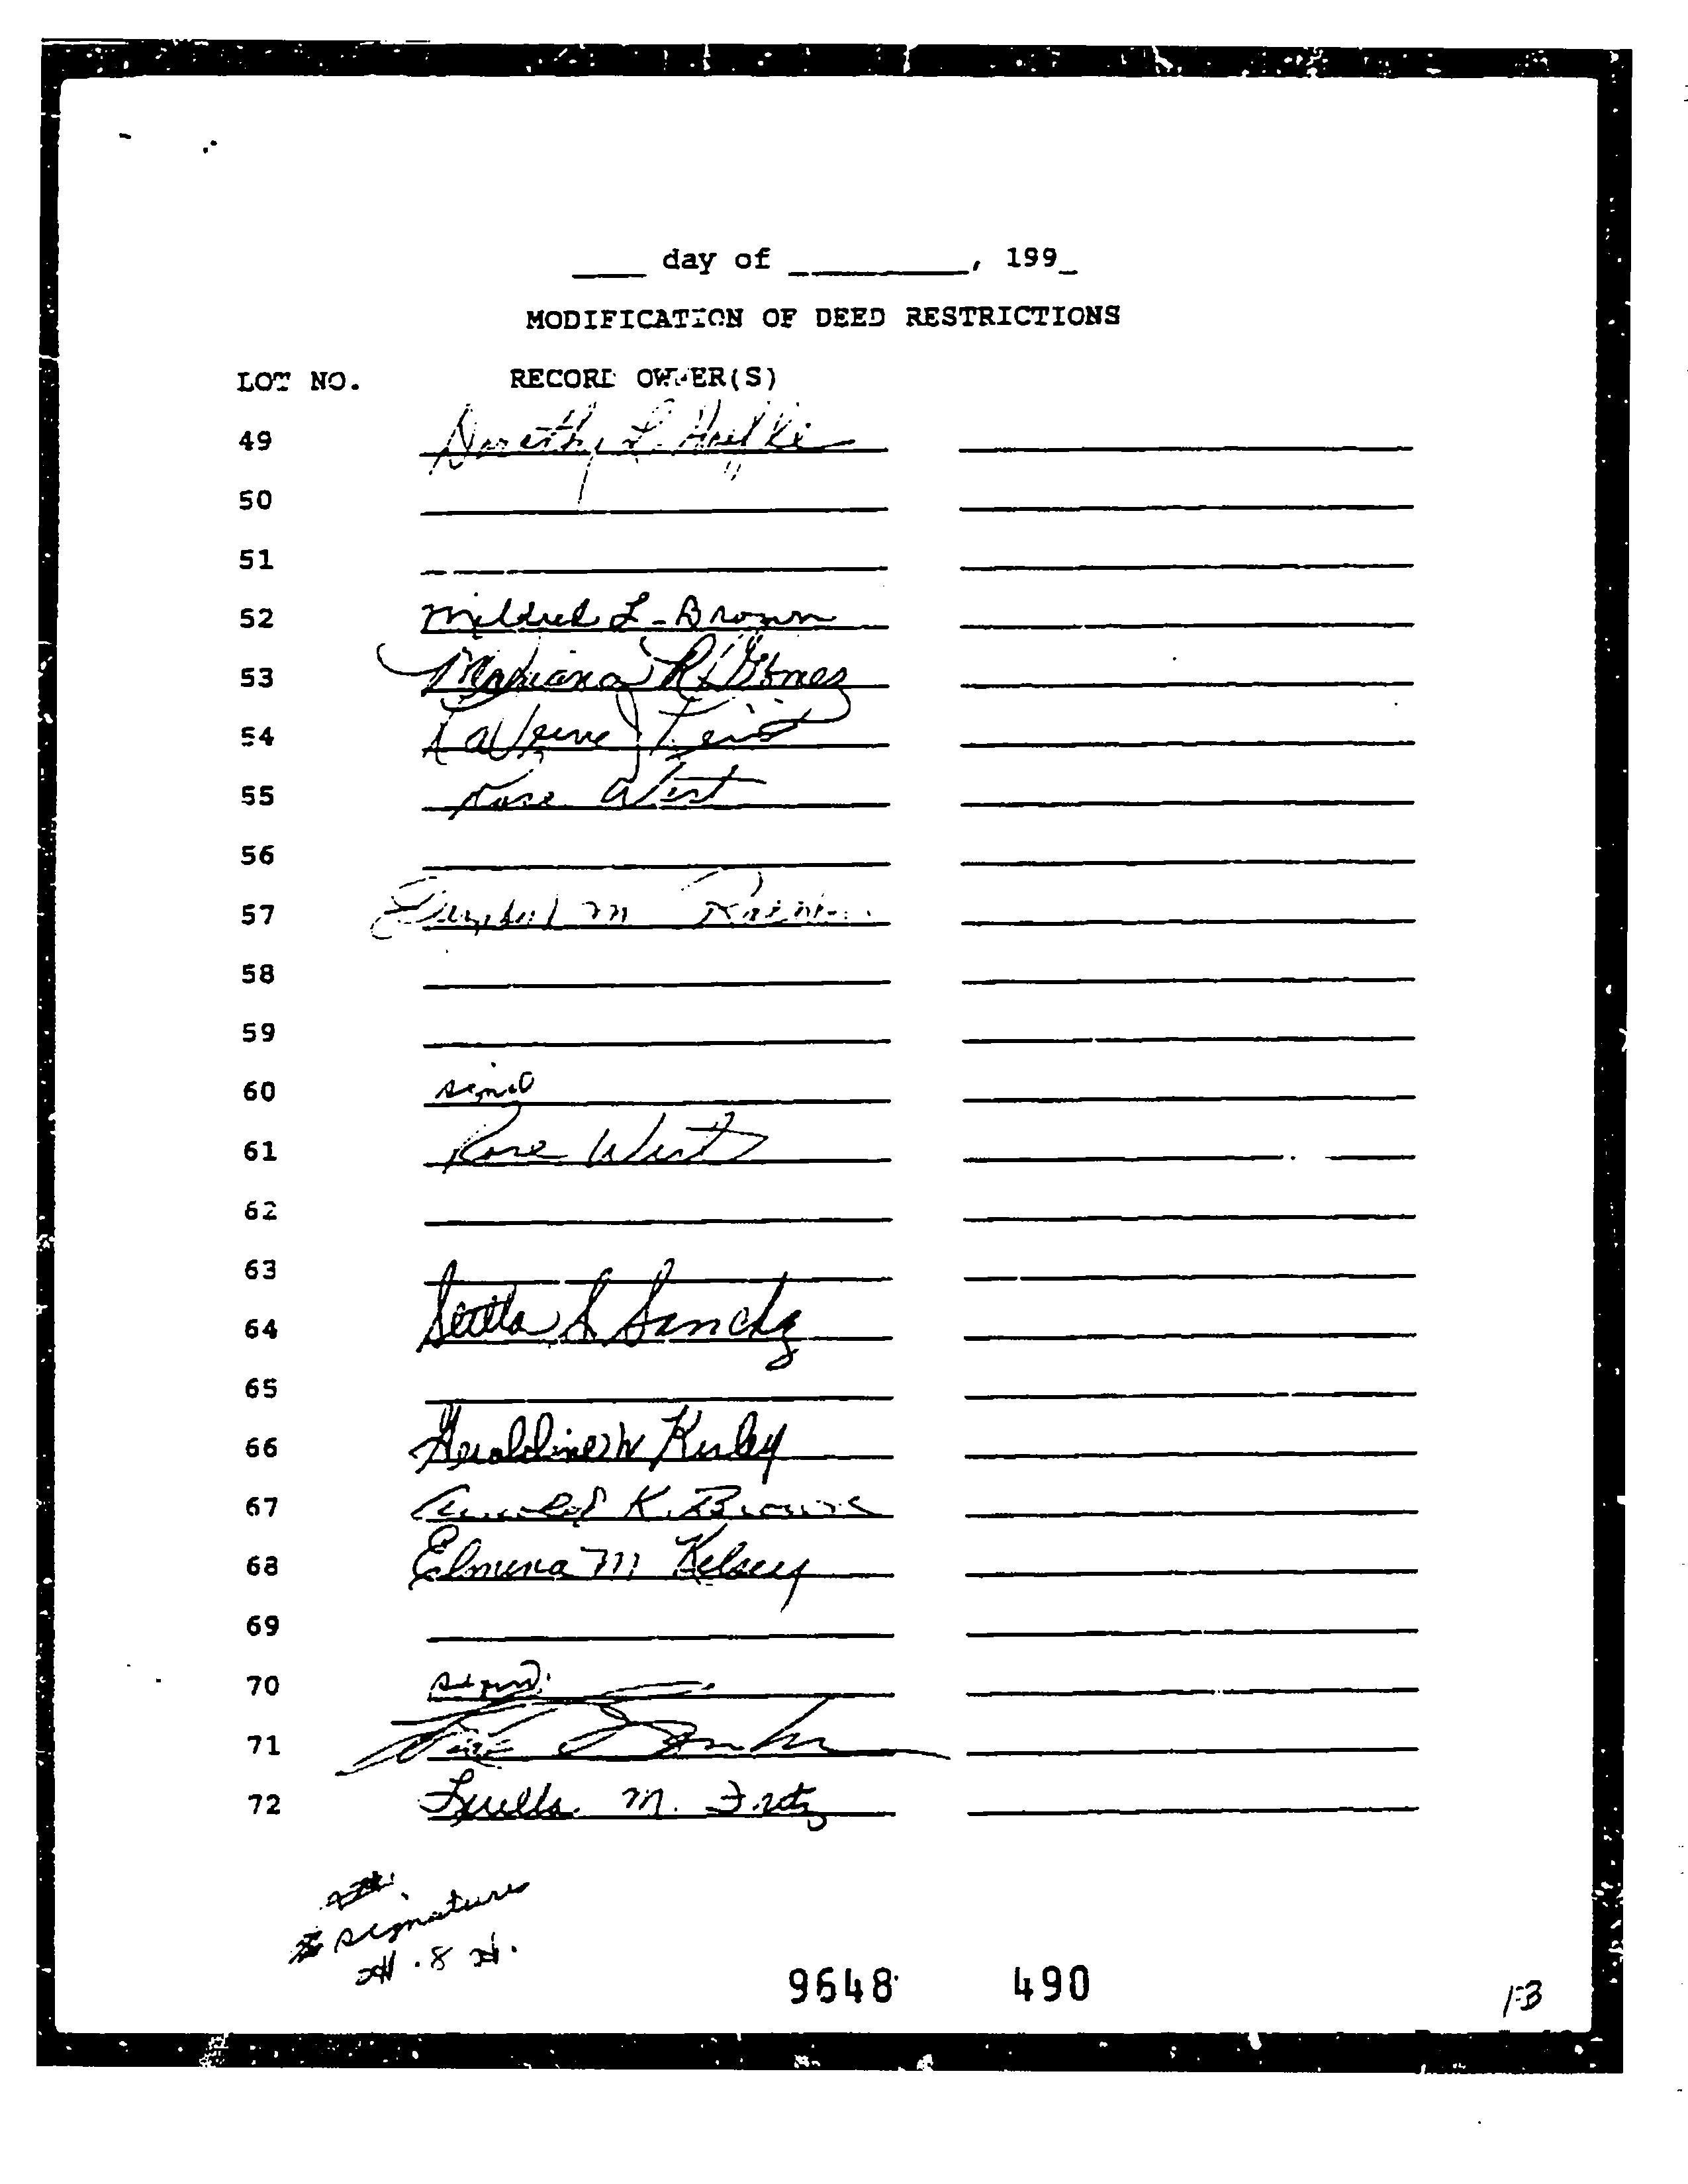 ____ day of __________, 199_
MODIFICATION OF DEED RESTRICTIONS
LOT NO. RECORD OWNER(S)
49 Dorothy L.
50
51
52 Mildred L. Brown
53 Mariano R. Gomez
54 LaVerne
55 Rose West
56
57 M
58
59
60 signed
61 Rose West
62
63
64 Sanchz
65
66 Geraldine W Kirley
67 Arnold K. Brown
68 Elmina M Kelsey
69
70 signed
71
72 Luella M. Fritz
signatures
9648 490